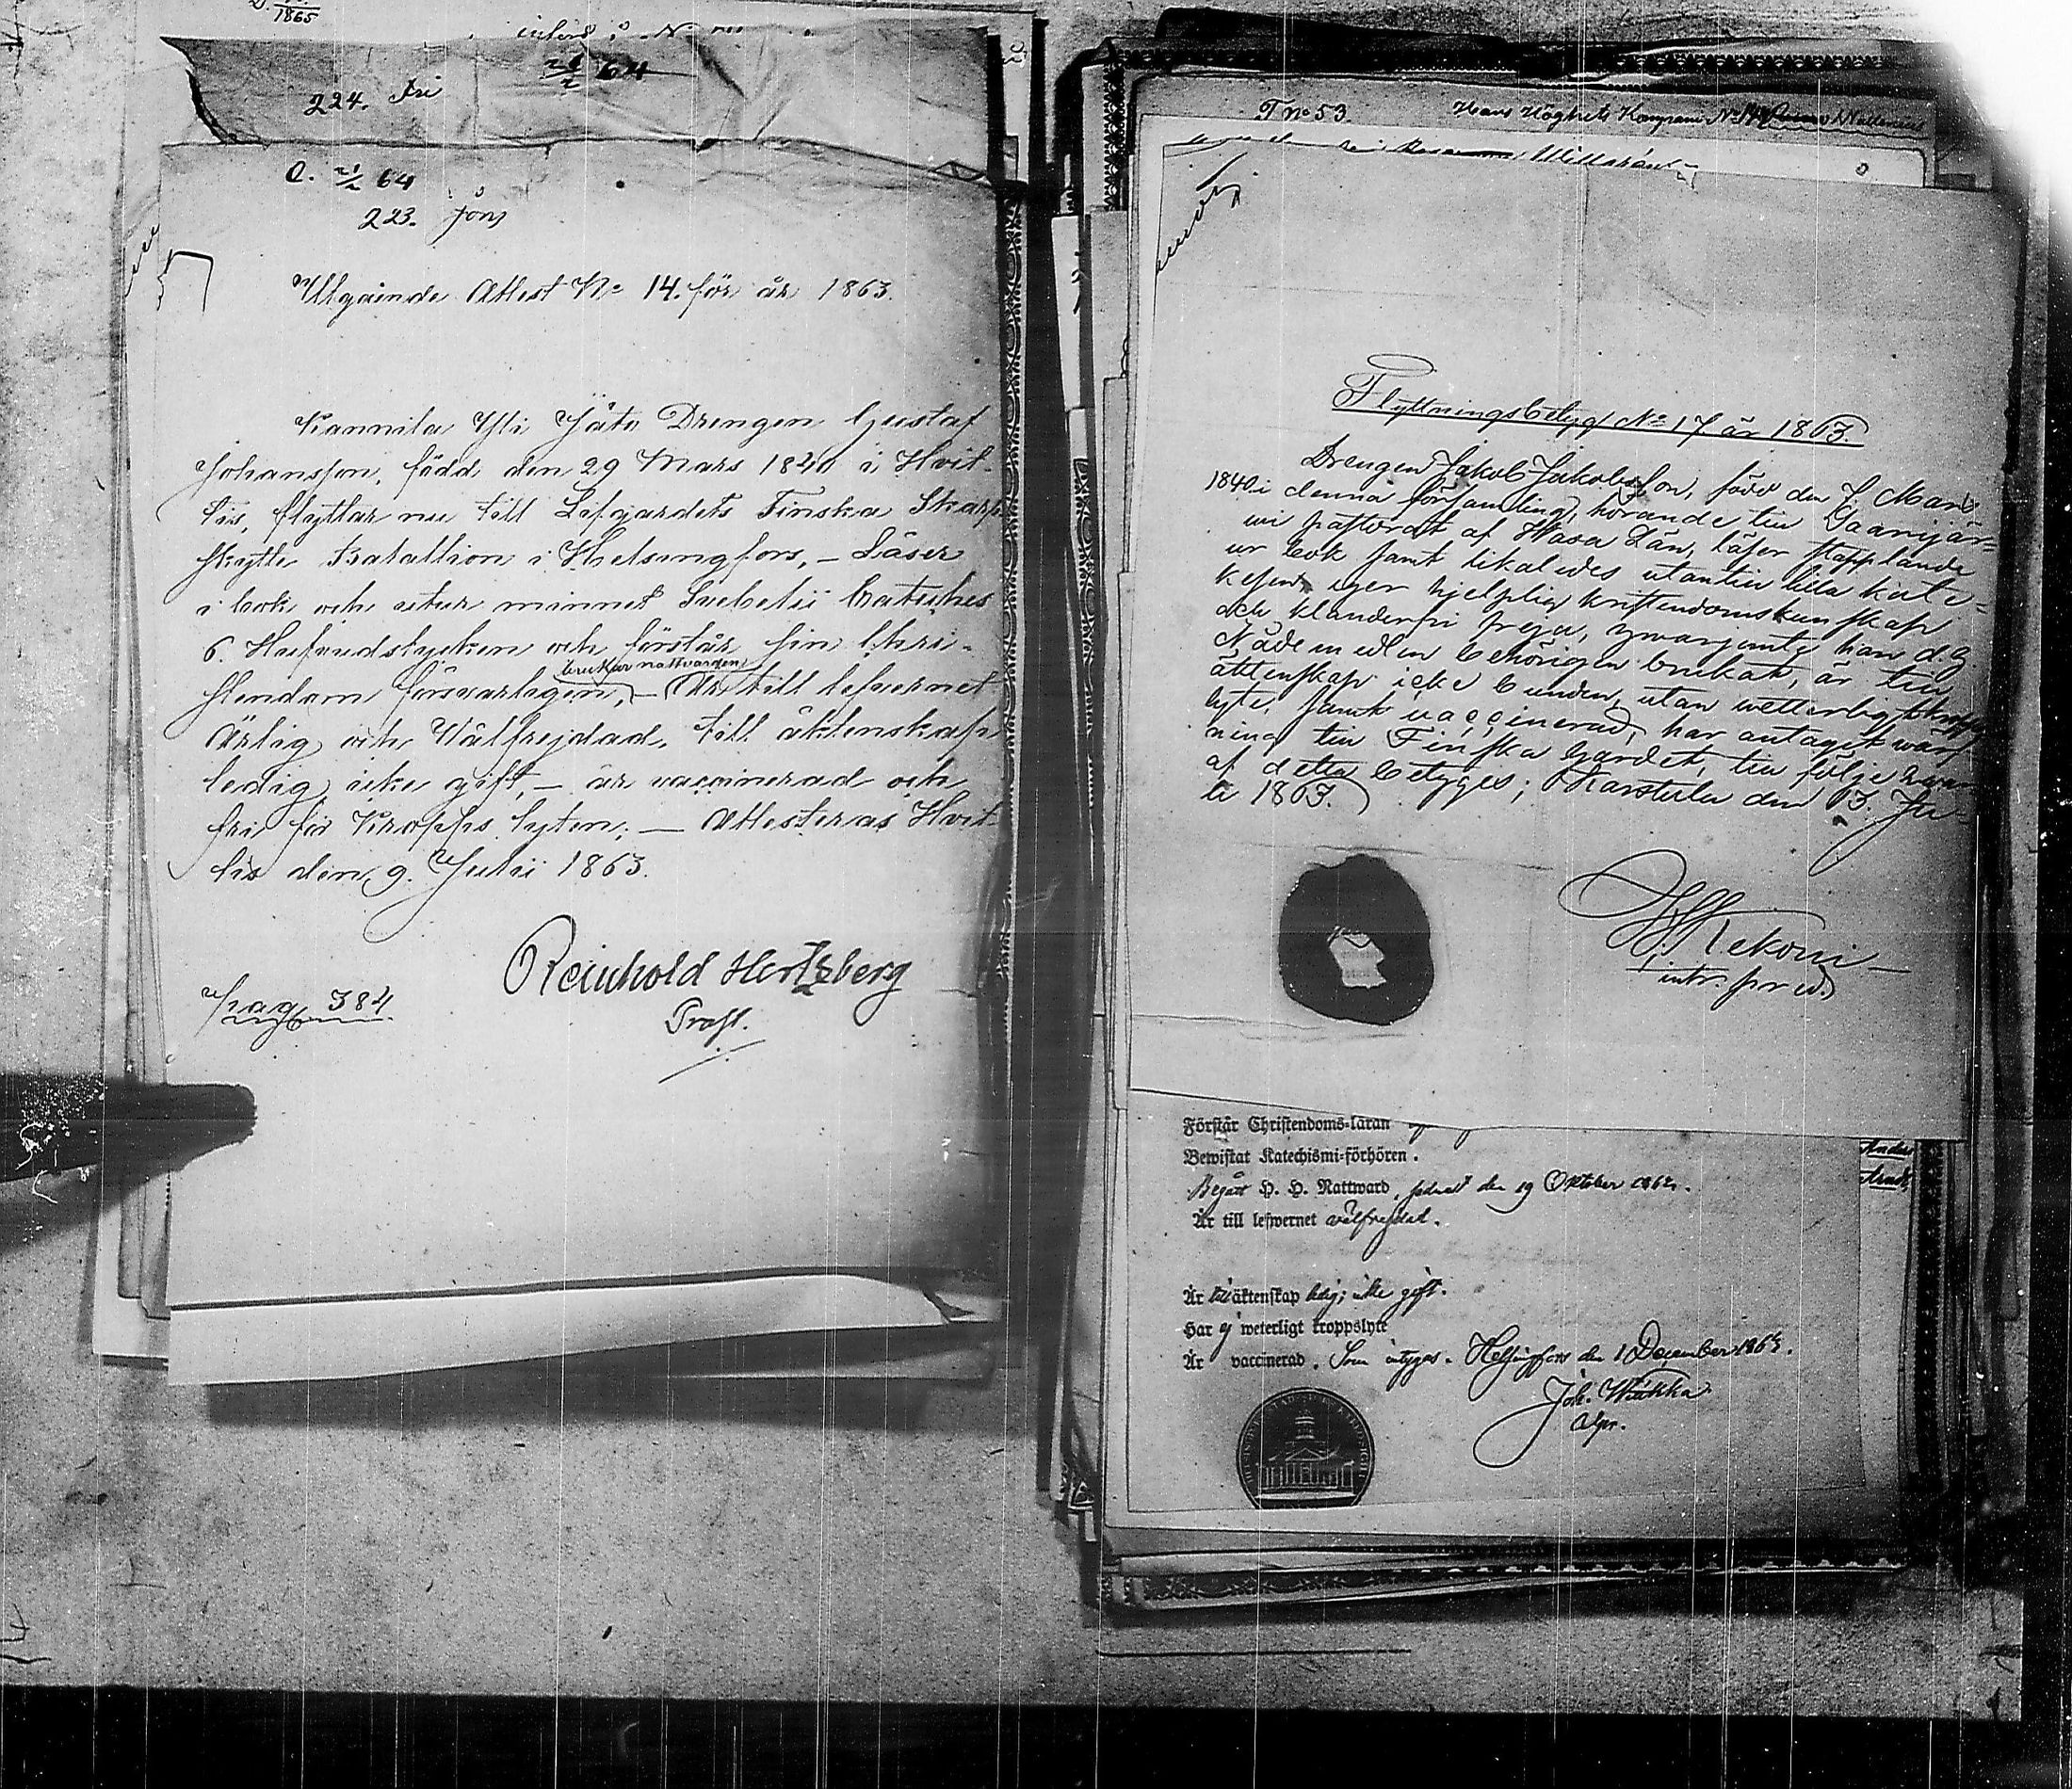 1865
224. Fri
64
C. 21/2 64
223. Jöns
Utgående Attest No 14. för år 1863.
Kannila Yli Jäto Drengen Gustaf
Johansson, född den 29 Mars 1840 i Hvit-
tis, flyttar nu till Lifgardets Finska Skarp
skytte Bataillion i Helsingfors, – Läser
i bok och utur minnet Svebelii Catèches
6. Hufvudstycken och förstår sin Chri-
stendom försvarligen, – brukar nattvarden, Är till lefvernet
Ärlig och Välfrejdad, till äktenskap
ledig icke gift, – är vaccinerad och
fri för Kropps lyten; – Attesteras Hvit-
tis den 9. Julii 1863.
Reinhold Hertzberg
Prost.
pag 384
T No 53. Hans Höghets Kompani No 14
Flyttningsbetyg No 17 år 1863.
Drengen Jakob Jakobsson, född den 7. Mars
1840 i denna församling, hörande till Saarijär-
wi pastorat af Wasa Län, läser stapplande
ur bok samt likaledes utantill lilla kate-
kesen, eger hjelplig kristendomskunskap
och klanderfri frejd, hvarjemte han d.h.
Nådemedlen behörigen brukat, är till
äktenskap icke bunden, utan wetterlig kropps
lyte, samt vaccinerad, har antagit värf
ning till Finska Gardet, till följe hvar
af detta betyges; Karstula den 13. Ju-
li 1863.
Kekoni
intr. pred.
Förstår Christendoms-läran
Bewistat Katechismi-förhören .
Begått H. H. Nattward, sednast den 19 Oktober 1862.
Är till lefwernet välfrejdad.
Är till äktenskap ledig; icke gift.
Har ej weterligt kroppslyte
Är vaccinerad. Som intygas. Helsingfors den 1 December 1863.
Joh. Wiukka
Apr.